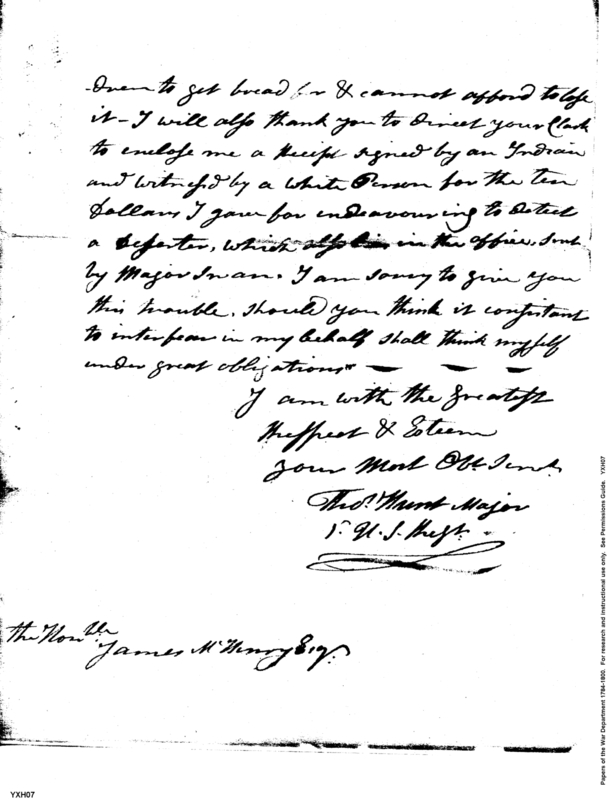 -dren to get bread for & cannot afford to lose
it - I will also thank you to direct your Clark
to enclose me a Receipt signed by an Indian
and witness'd by a white Person for the ten
Dollars I gave for endeavouring to detect
a Deserter, which also lies in the office, sent
by Major Swan. I am sorry to give you
this trouble. Should you think it consistant
to interfear in my behalf shall think myself
under great obligations"
I am with the greatest
Respect & Esteem
your Most Obt Servt
Thos. Hunt Major
1st U.S. Regt.
The Honble
James McHenry Esqr.
Papers of the War Department 1784-1800. For research and instructional use only. See Permissions Guide. YXH07
YXH07